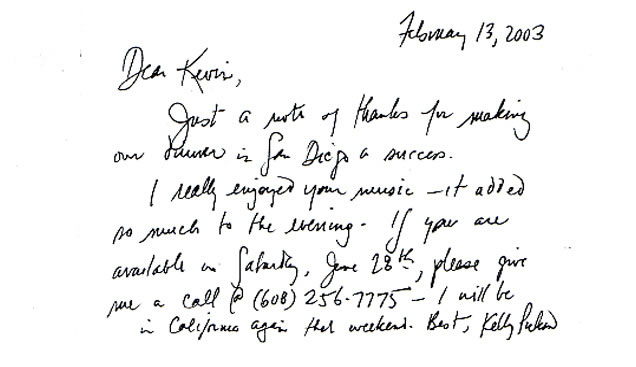 February 13, 2003
Dear Kevin,
Just a note of thanks for making
our dinner in San Diego a success.
I really enjoyed your music – it added
so much to the evening. If you are
available on Saturday, June 28th, please give
me a call @ (608) 256-7775 – I will be
in California again that weekend. Best, Kelly